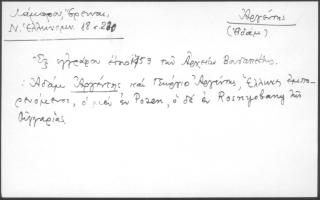 Λάμπρος, Ἔρευναι,
Ν. Ἑλληνομν. 18 σ. 280
Ἀργέντης
(Ἀδάμ)
Ἐξ ἐγγράφου ἔτους 1759 τῶν Ἀρχείων Βουδαπέστης.
: Ἀδὰμ Ἀργέντης καὶ Γεώργιος Ἀργέντης, Ἕλληνες ἐμπο-
ρευόμενοι, ὁ μὲν ἐν Pozen, ὁ δὲ ἐν Rosnyobany τῆς
Οὑγγαρίας.